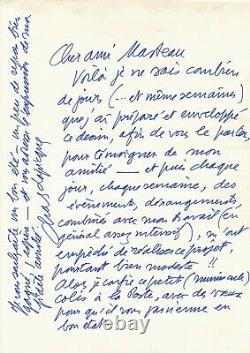 Cher ami Masteau
Voilà je ne sais combien
de jours (... et même semaines)
que j'ai préparé et enveloppé
ce dessin, afin de vous le porter
pour témoigner de mon
amitié — et puis chaque
jour, chaque semaine, des
événements, dérangements,
combinés avec mon travail (en
général assez intensif), m'ont
empêché de réaliser ce projet,
pourtant bien modeste !!
Alors je confie ce petit (minuscule)
colis à la Poste, avec des vœux
pour qu'il vous parvienne en
bon état.
Je vous souhaite un bon été — un peu de repos bien
et vous adresse l'expression de ma
amitié.
ebay